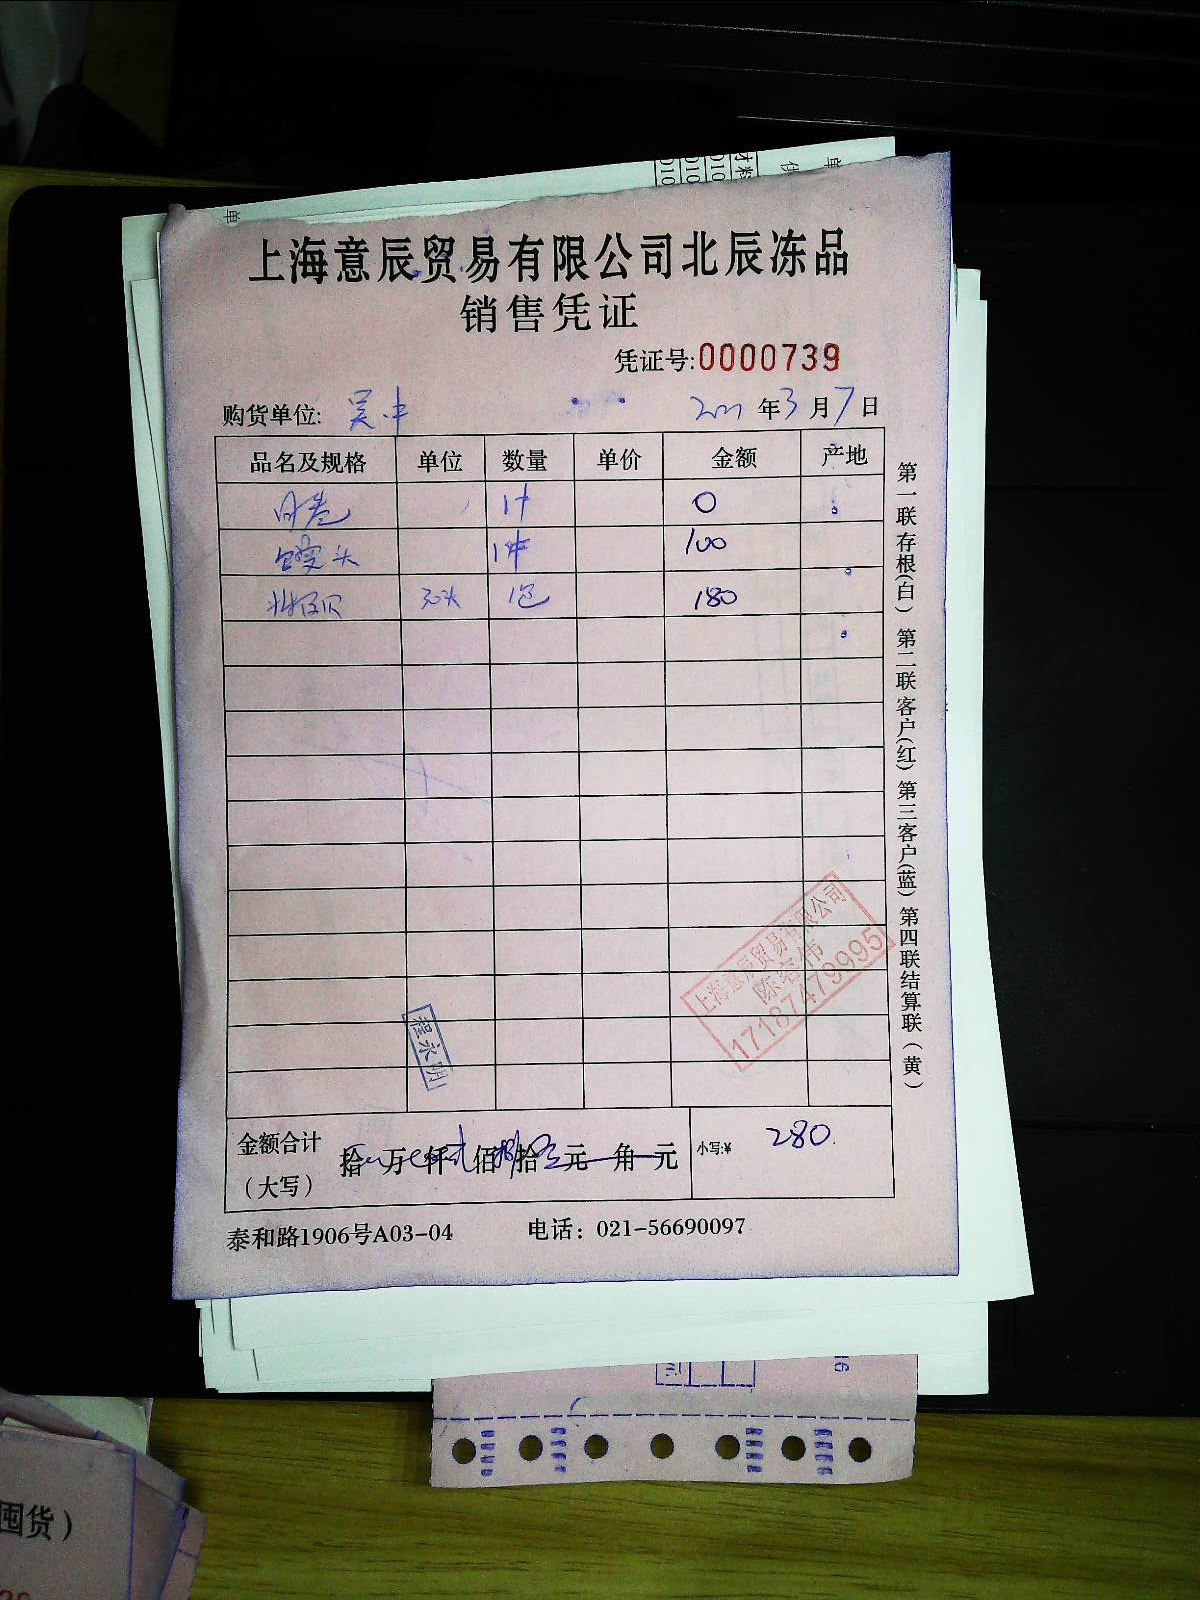 单
上海意辰贸易有限公司北辰冻品
销售凭证
凭证号:0000739
购货单位: 吴中 年3月7日
品名及规格 单位 数量 单价 金额 产地
1件 0
1件 100
1包 180
第一联存根(白) 第二联客户(红) 第三客户(蓝) 第四联结算联(黄)
上海意辰贸易有限公司
17187479995
程永明
金额合计
(大写)
拾 万 仟 佰 拾 元 角 元
小写:¥ 280
泰和路1906号A03-04 电话: 021-56690097
囤货)